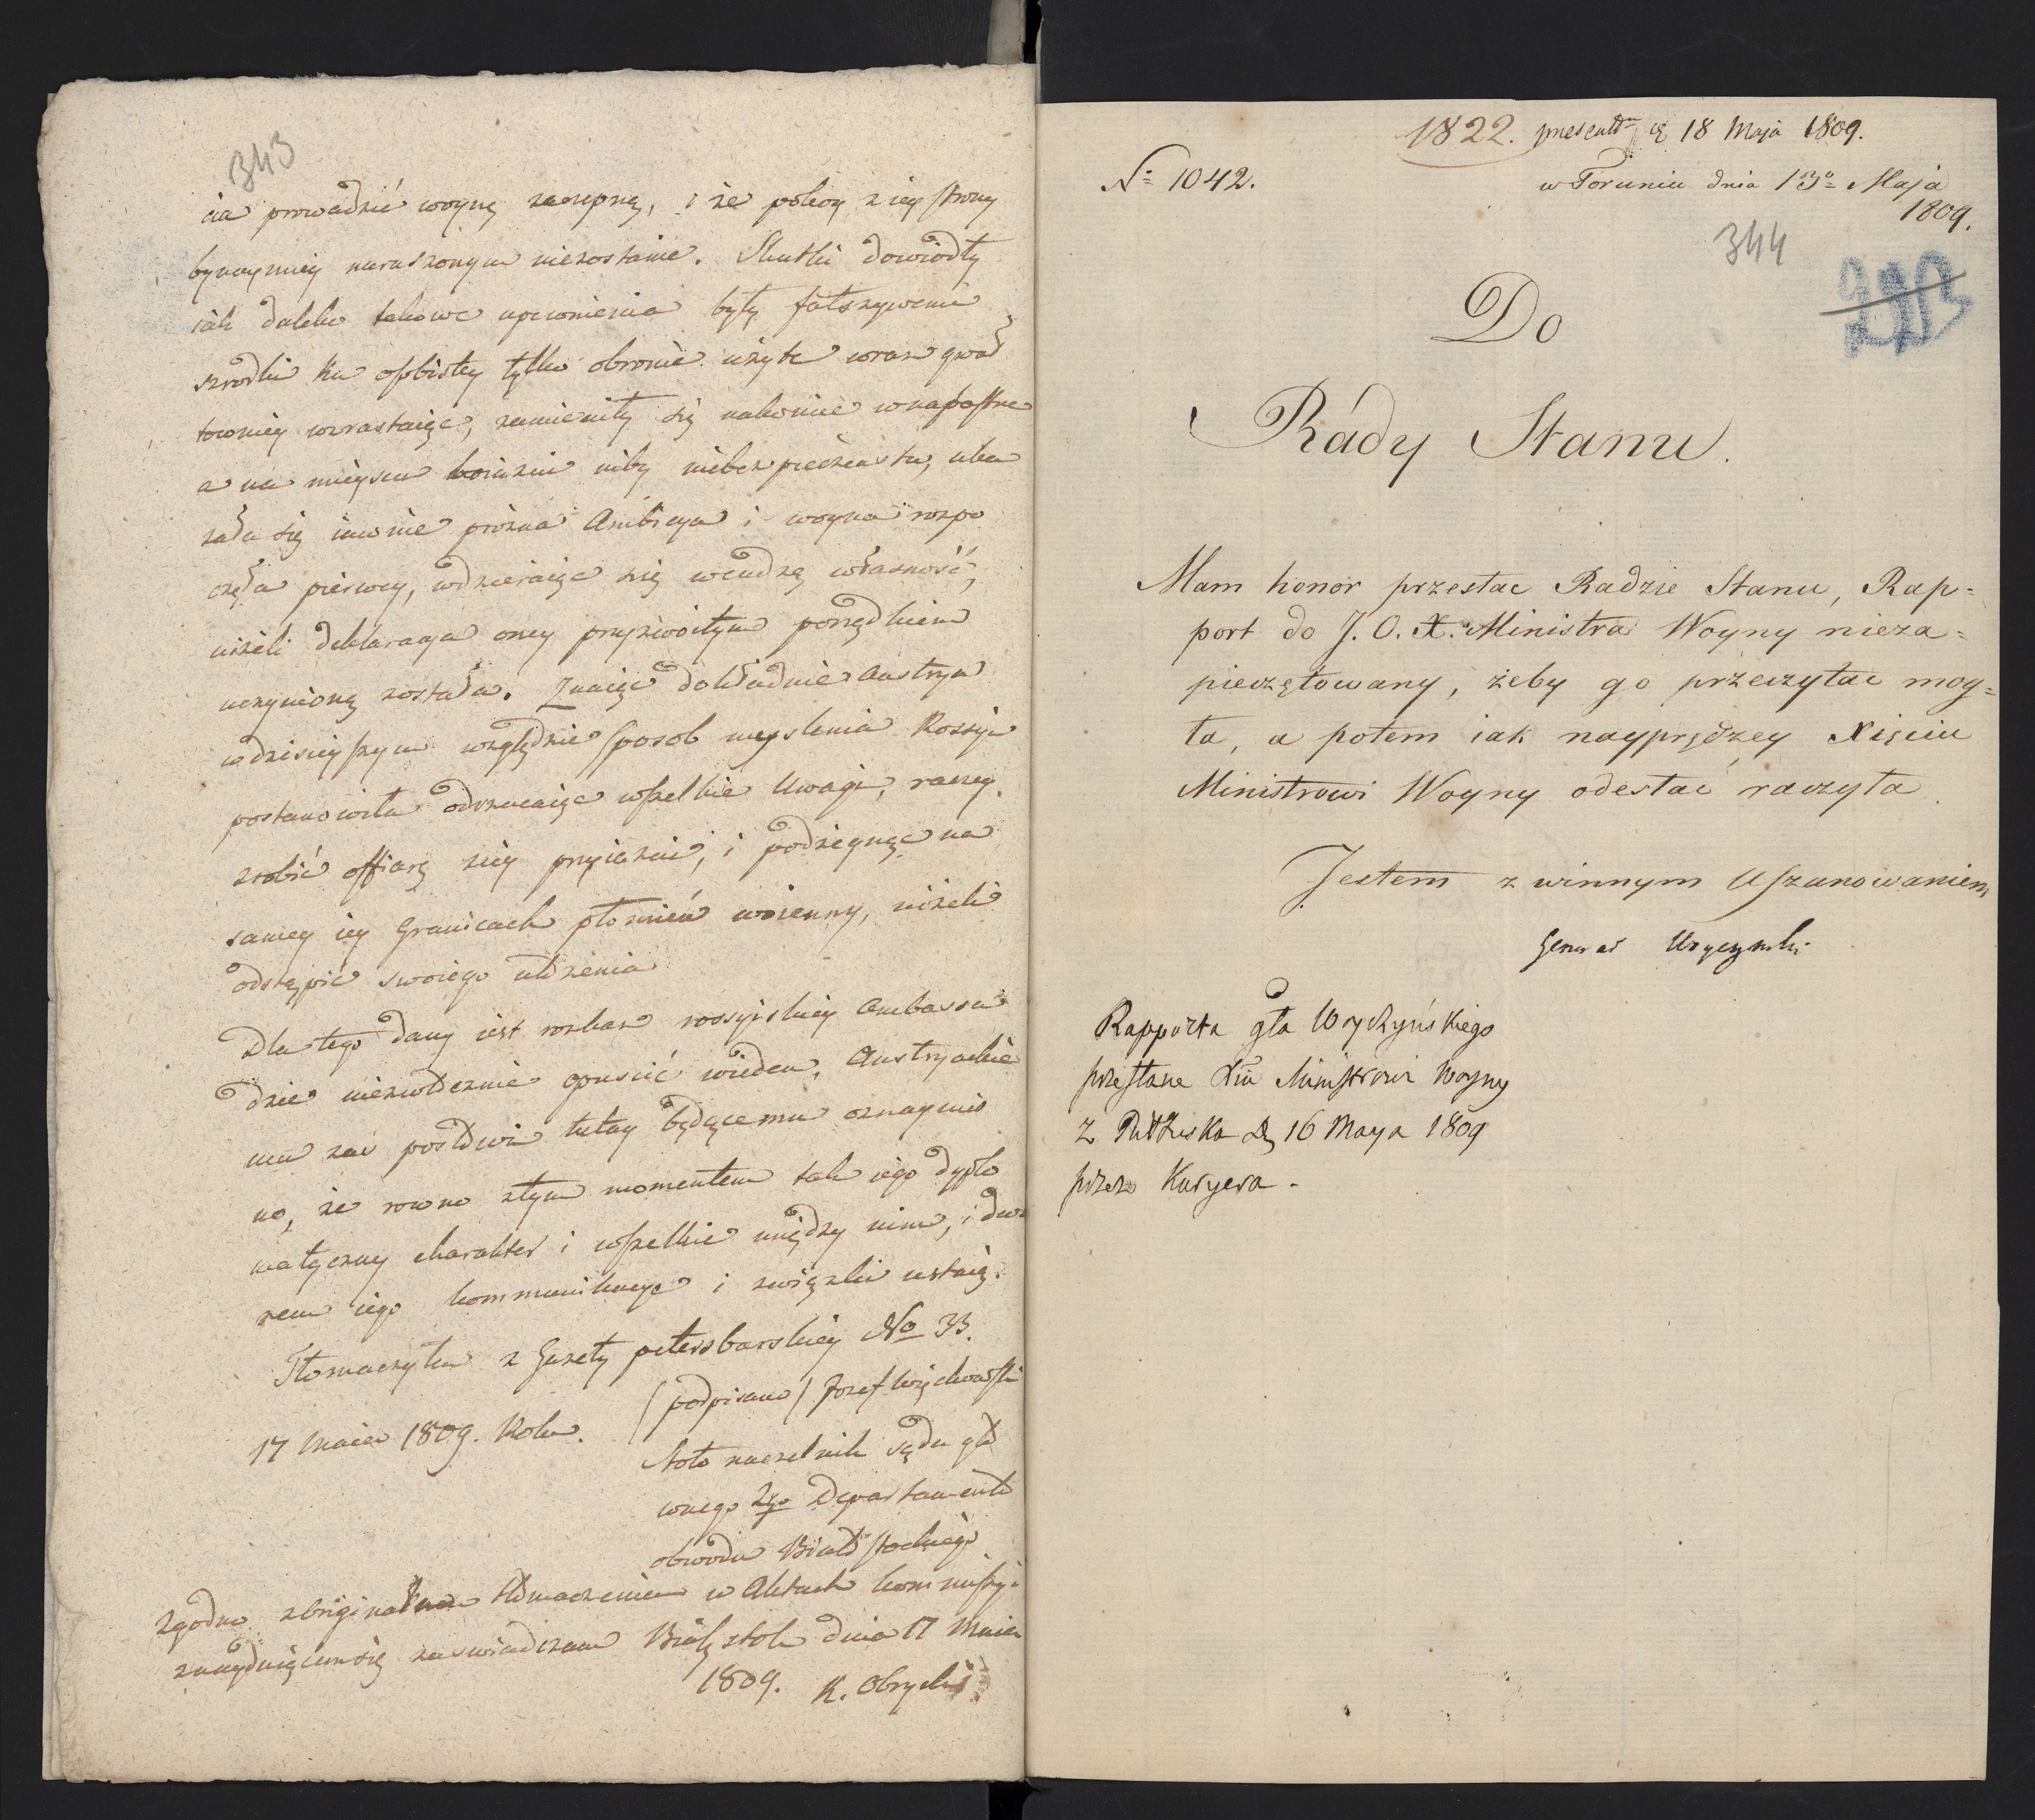 343
cia prowadzić woynę zaczepną, i że pokoy z iey strony
bynaymniey naruszonym niezostanie. Skutki dowiodły
iak daleko takowe upewnienia były fałszywemi
szrodki ku osobistey tylko obronie użyte wraz gwał
towniey wzrastaiąc, zamieniły się nakoniec w napastne
a na mieyscu boiaźni niby niebezpieczeństw, uka
zała się iawnie prózna Ambicya i woyna rozpo
częła pierwey, wdzieraiąc się w cudzą własność,
niżeli deklaracya oney przyzwoitym porządkiem
uczynioną została. Znaiąc dokładnie Austrya
w dzisieyszym względzie sposob myslenia Rossyi
postanowiła odrzucaiąc wszelkie Uwagi, raczey
zrobić offiarę z iey przyiaźni, i podżegnąc na
samey iey Granicach płomień woienny, niżeli
odstąpić swoiego ułożenia
Dla tego dany iest rozkaz rossyiskiey Ambassa
dzie niezwłocznie opuscić wieden, Austryackie
mu zaś posłowi tutay będącemu oznaymio
no, że rowno z tym momentem tak iego dyplo
matyczny charakter i wszelkie między nim, i dwo
rem iego kommunikacye i związki ustaią.
Tłomaczyłem z Gazety petersburskiey No 33.
17 Maia 1809. Roku. (podpisano) Jozef
Stoło naczelnik sądu głó
wnego 2go Departamentu
obwodu Białostockiego
Zgodno z originalnem tłomaczeniem w Aktach kommissyi
znayduiącemsię zaswiadczam Białystok dnia 17 Maia
1809. K. Obrycki
1822. presentt d 18 Maja 1809.
No 1042. w Toruniu dnia 13o Maja
1809.
344
Do
Rády Stanu.
Mam honor przesłac Radzie Stanu, Rap=
port do J. O. X. Ministra Woyny nieza=
pieczętowany, żeby go przeczytac mog=
ła, a potem iak nayprędzey Xięciu
Ministrowi Woyny odesłać raczyła.
Jestem z winnym Uszanowaniem
Generał Woyczynski
Rapporta gła Woyczyńskiego
przesłane Xciu Ministrowi Woyny
z Pułtuska d 16 Maya 1809
przez Kuryera -